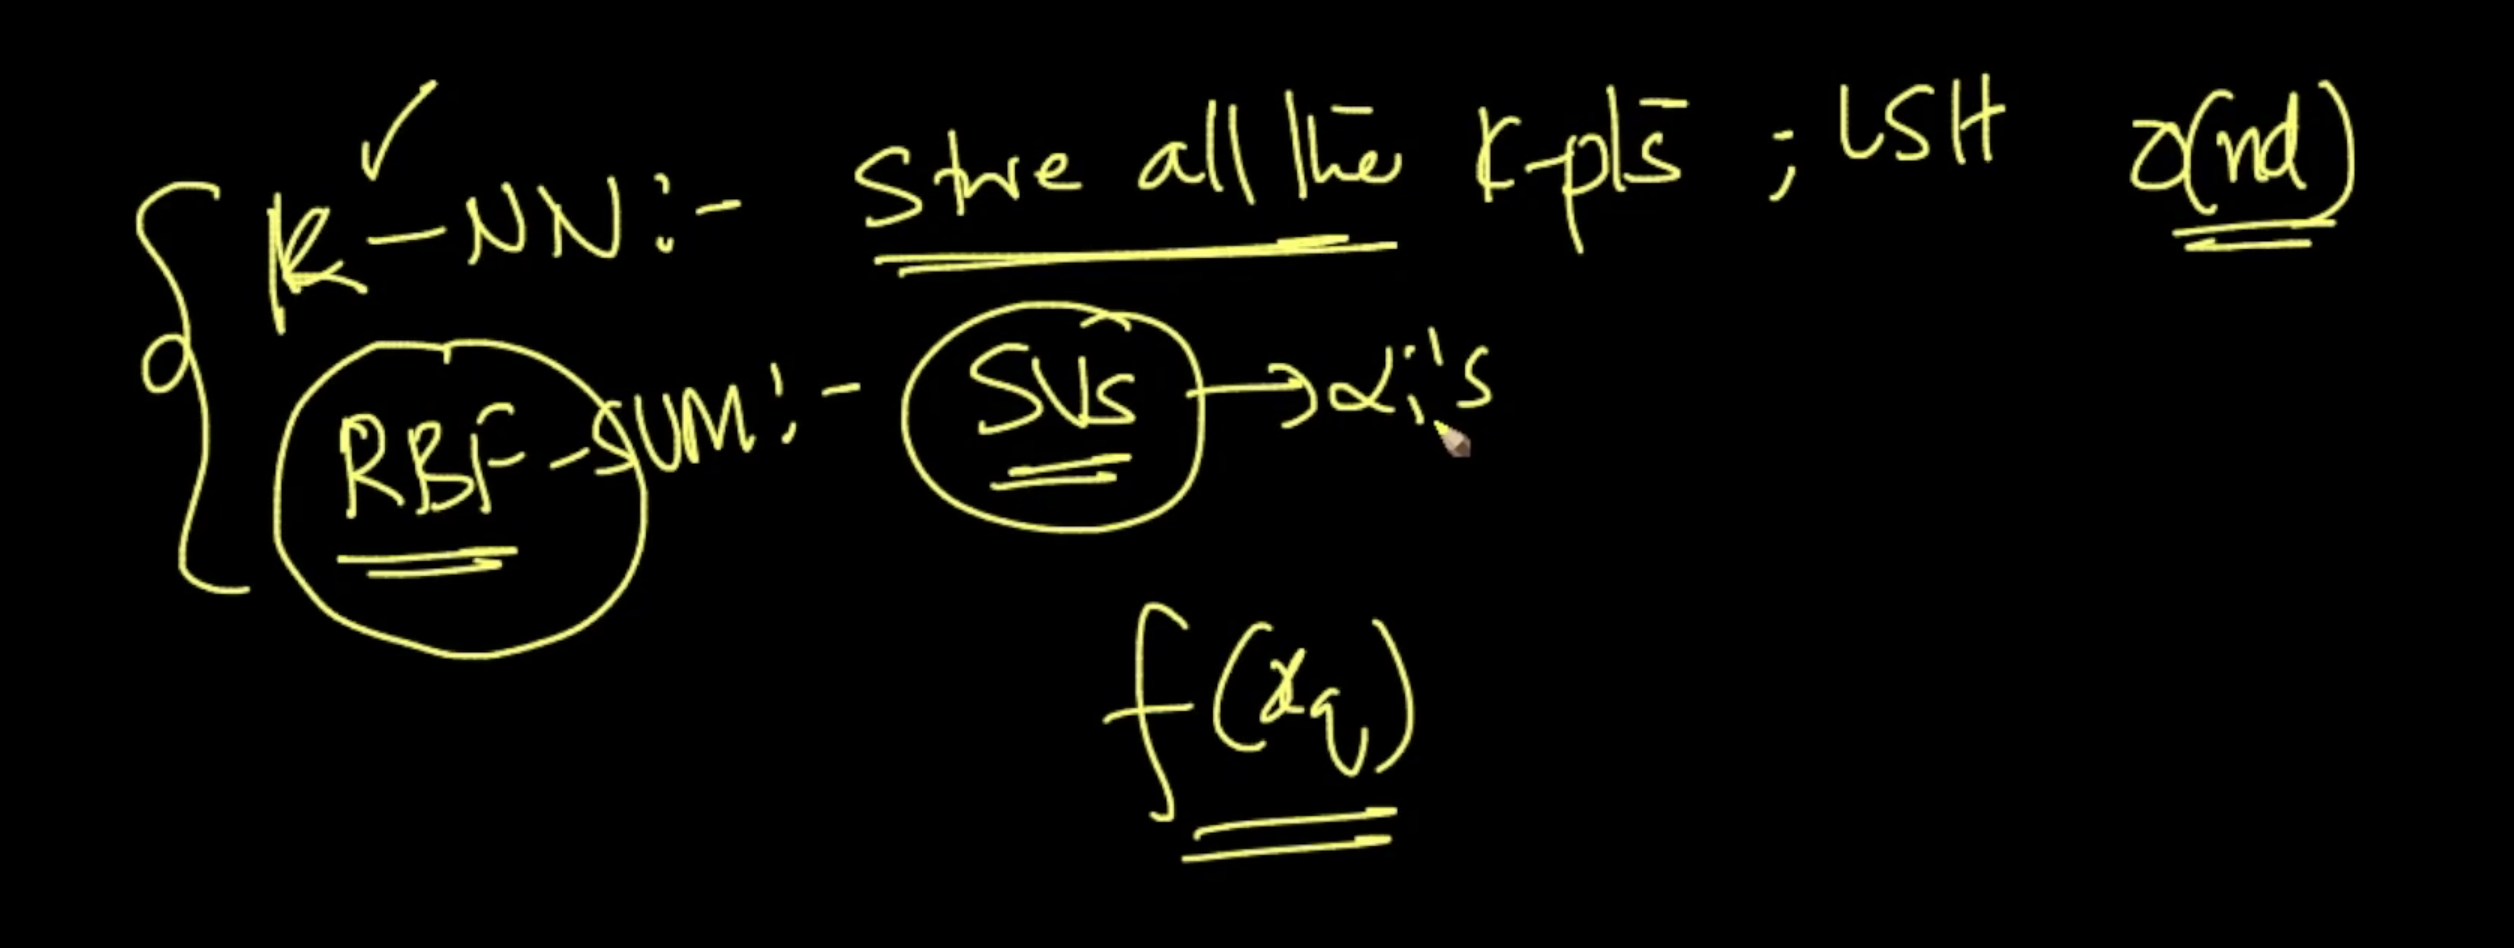 K-NN:- Store all the K-pts ; LSH O(nd)
RBF-SVM:- SVs → αi's
f(xq)